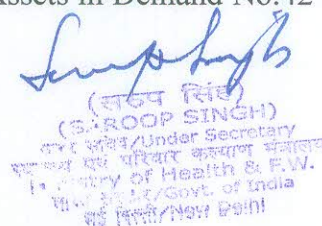 Assets in Demand No.42
(सरूप सिंह)
(SAROOP SINGH)
अवर सचिव/Under Secretary
एवं परिवार कल्याण मंत्रालय
Ministry of Health & F.W.
भारत सरकार/Govt. of India
नई दिल्ली/New Delhi